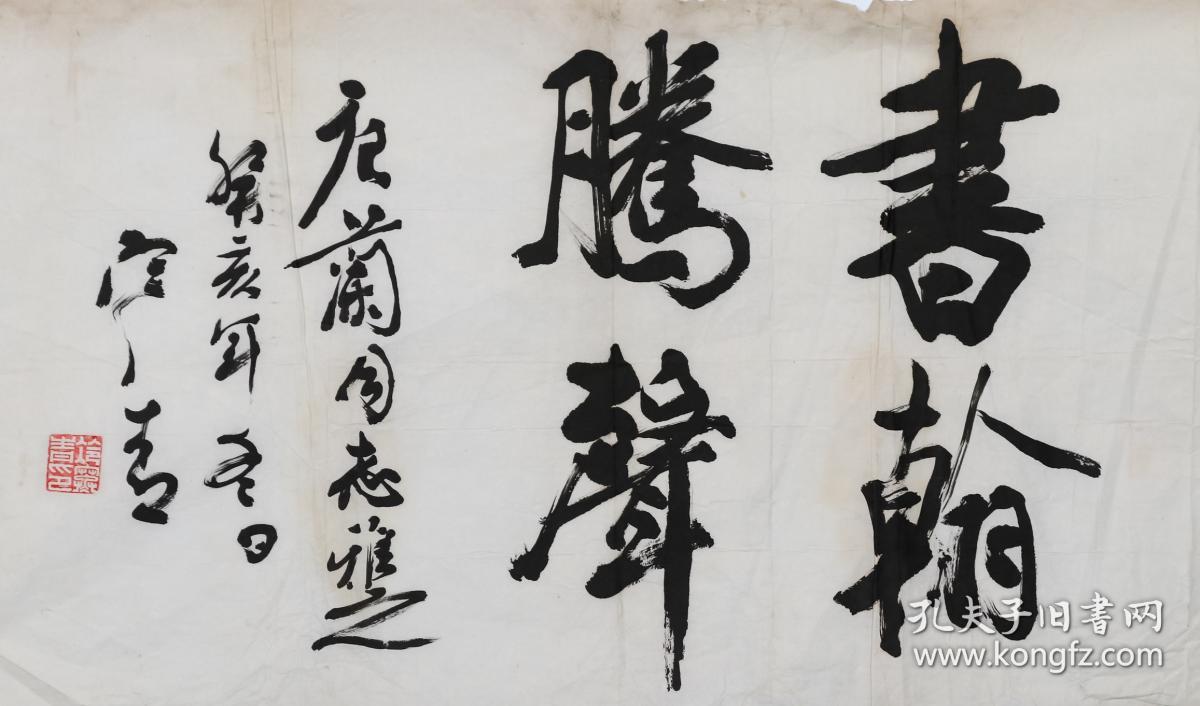 書翰
騰聲
蘭同志雅之
癸亥年冬日
青
孔夫子旧書网
www.kongfz.com